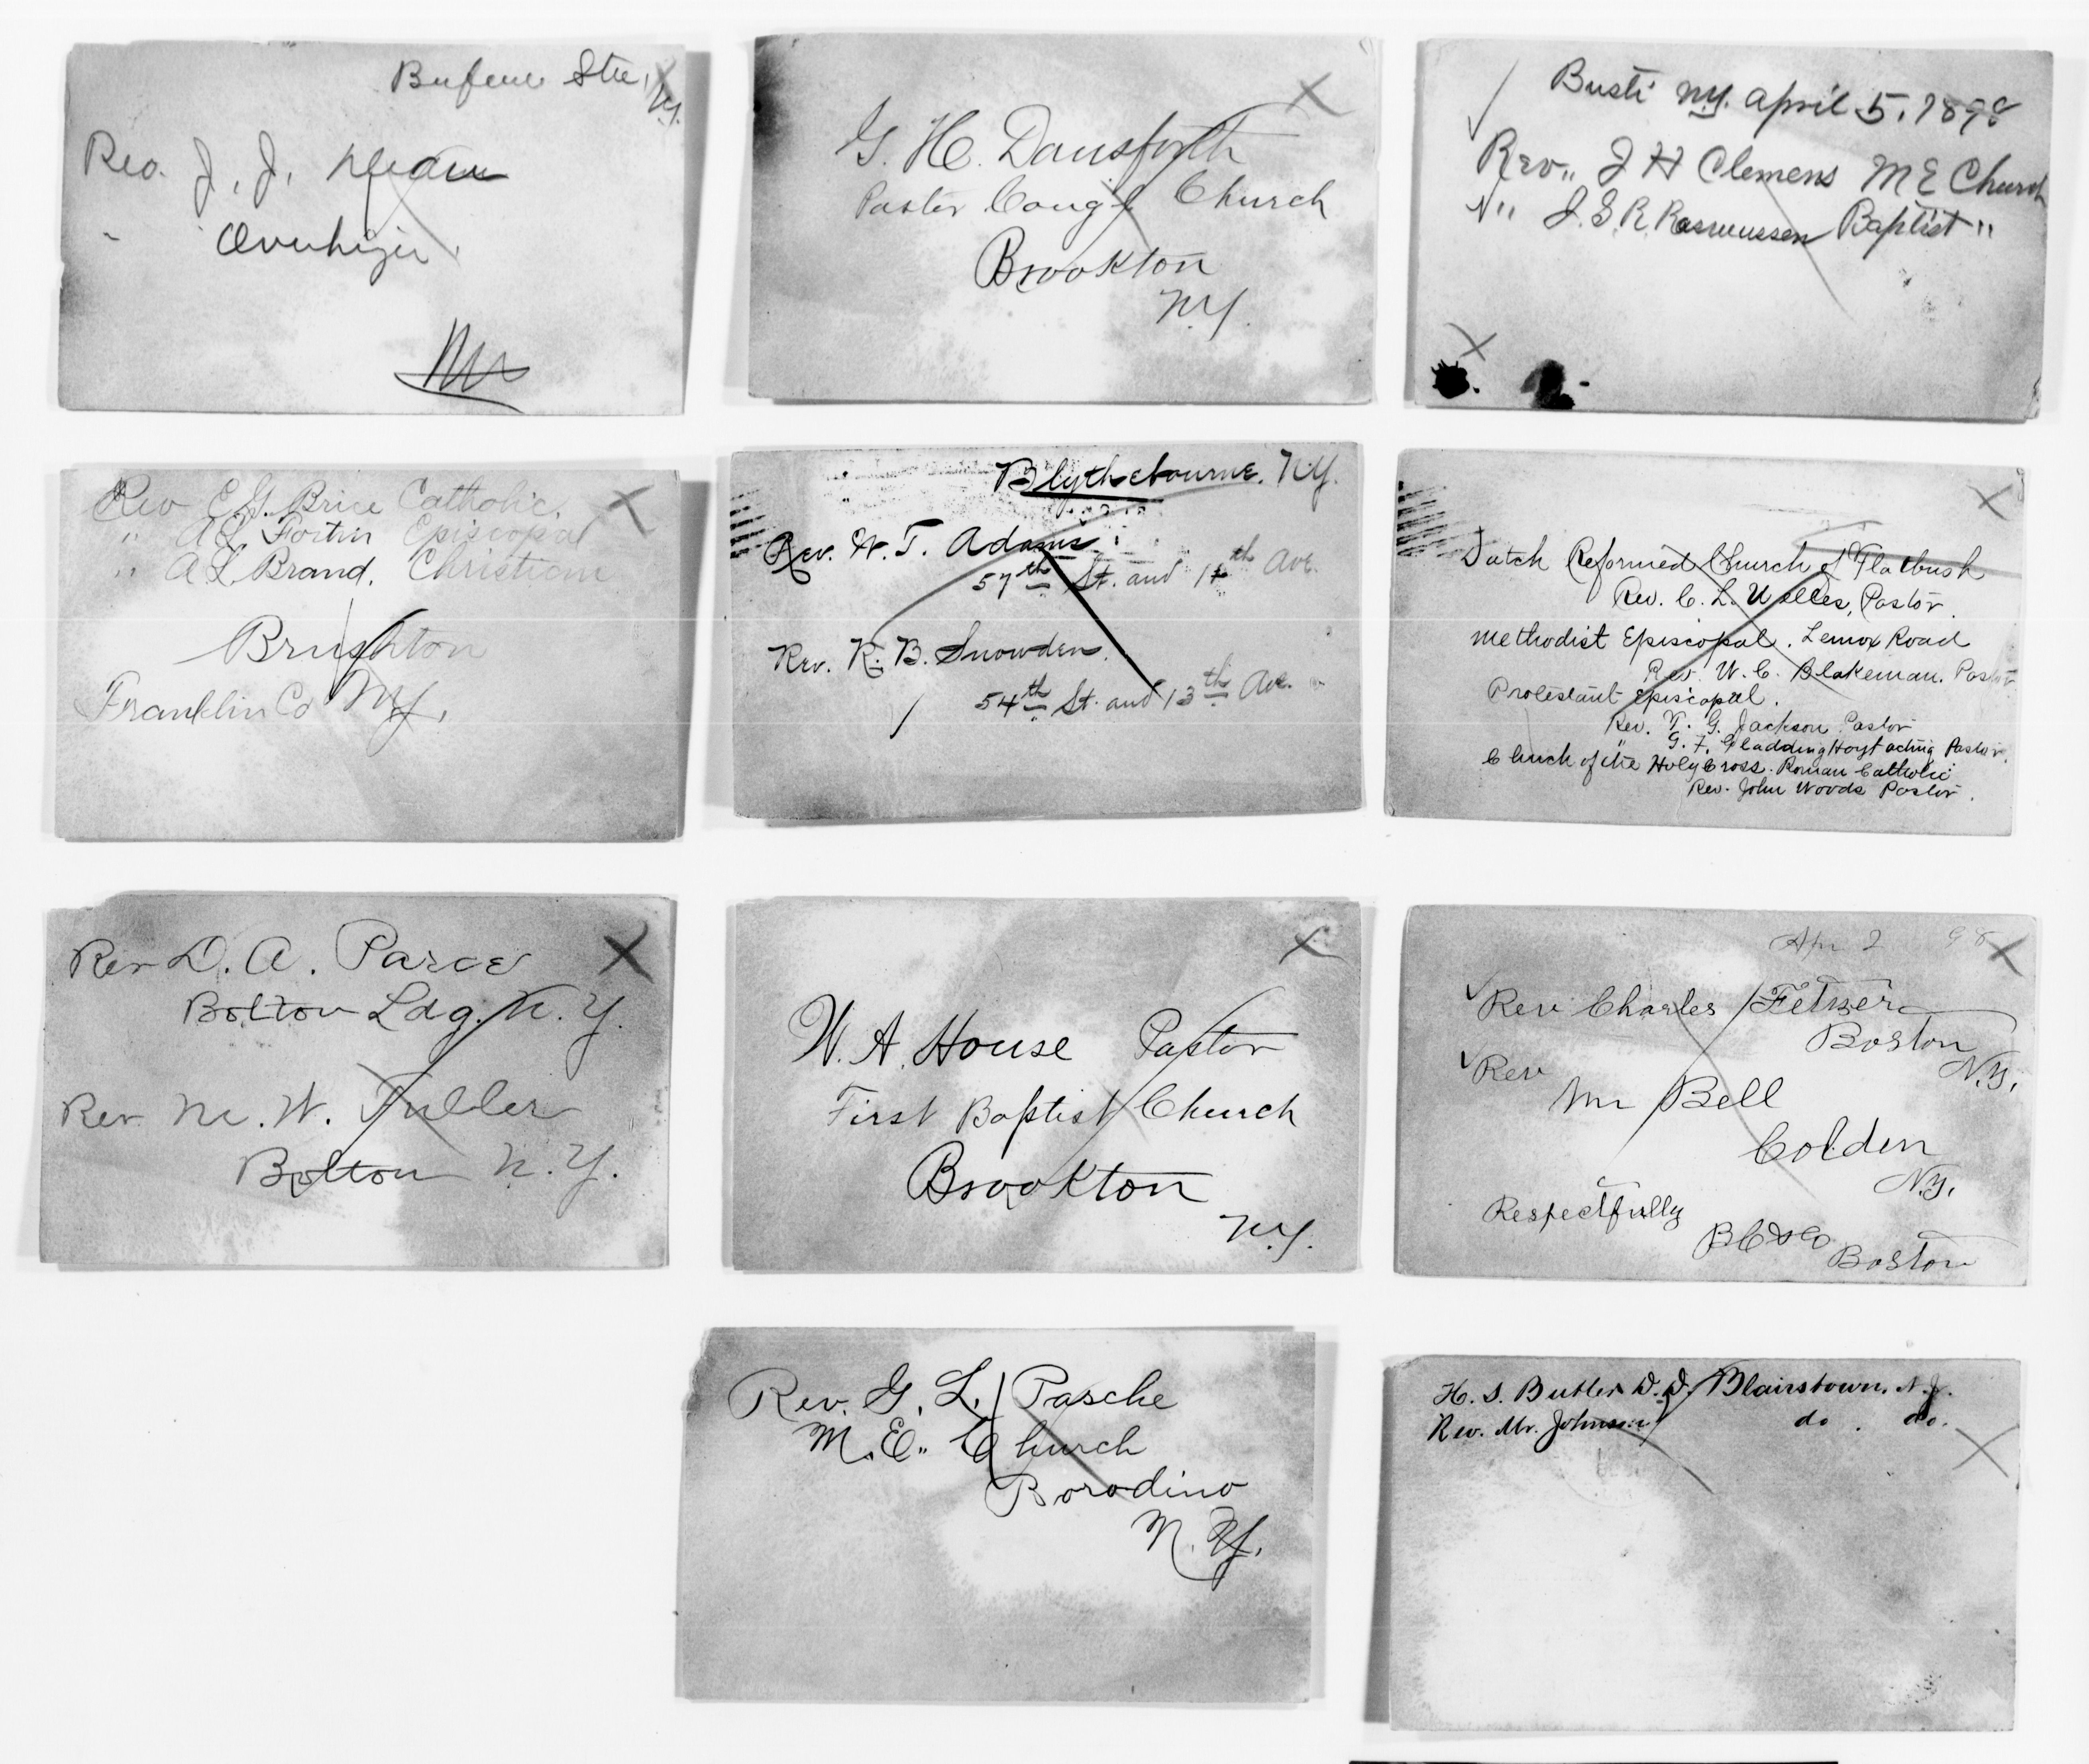 Rev. J. J.
N.Y.
G. H. Dansforth
Pastor Cong'l Church
Brookton
N.Y.
Busti N.Y. April 5, 1898
Rev. J H Clemens M E Church
" J. S. R. Rasmussen Baptist "
Rev E. G. Brice Catholic.
" A. L. Fortin Episcopal
" A L Brand. Christian
Brushton
Franklin Co N.Y.
Blythebourne. N.Y.
Rev. W. T. Adams.
57th St. and 11th Ave.
Rev. R. B. Snowden.
54th St. and 13th Ave.
Dutch Reformed Church of Flatbush
Rev. C. L. Welles, Pastor.
Methodist Episcopal. Lenox Road
Rev. W. C. Blakeman. Pastor
Protestant Episcopal.
Rev. T. G. Jackson Pastor
" G. F. Gladding Hoyt acting Pastor.
Church of the Holy Cross. Roman Catholic
Rev. John Woods Pastor.
Rev D. A. Parce
Bolton Ldg. N.Y.
Rev. M. W. Fuller
Bolton N.Y.
W. A. House Pastor
First Baptist Church
Brookton
N.Y.
Apr 2 98
Rev Charles Fetzer
Boston
N.Y.
Rev
Mr Bell
Colden
N.Y.
Respectfully
Boston
Rev. G. L. Pasche
M. E. Church
Borodino
N. Y.
H. S. Butler D. D. Blairstown. N. J.
Rev. Mr. Johnson do. do.